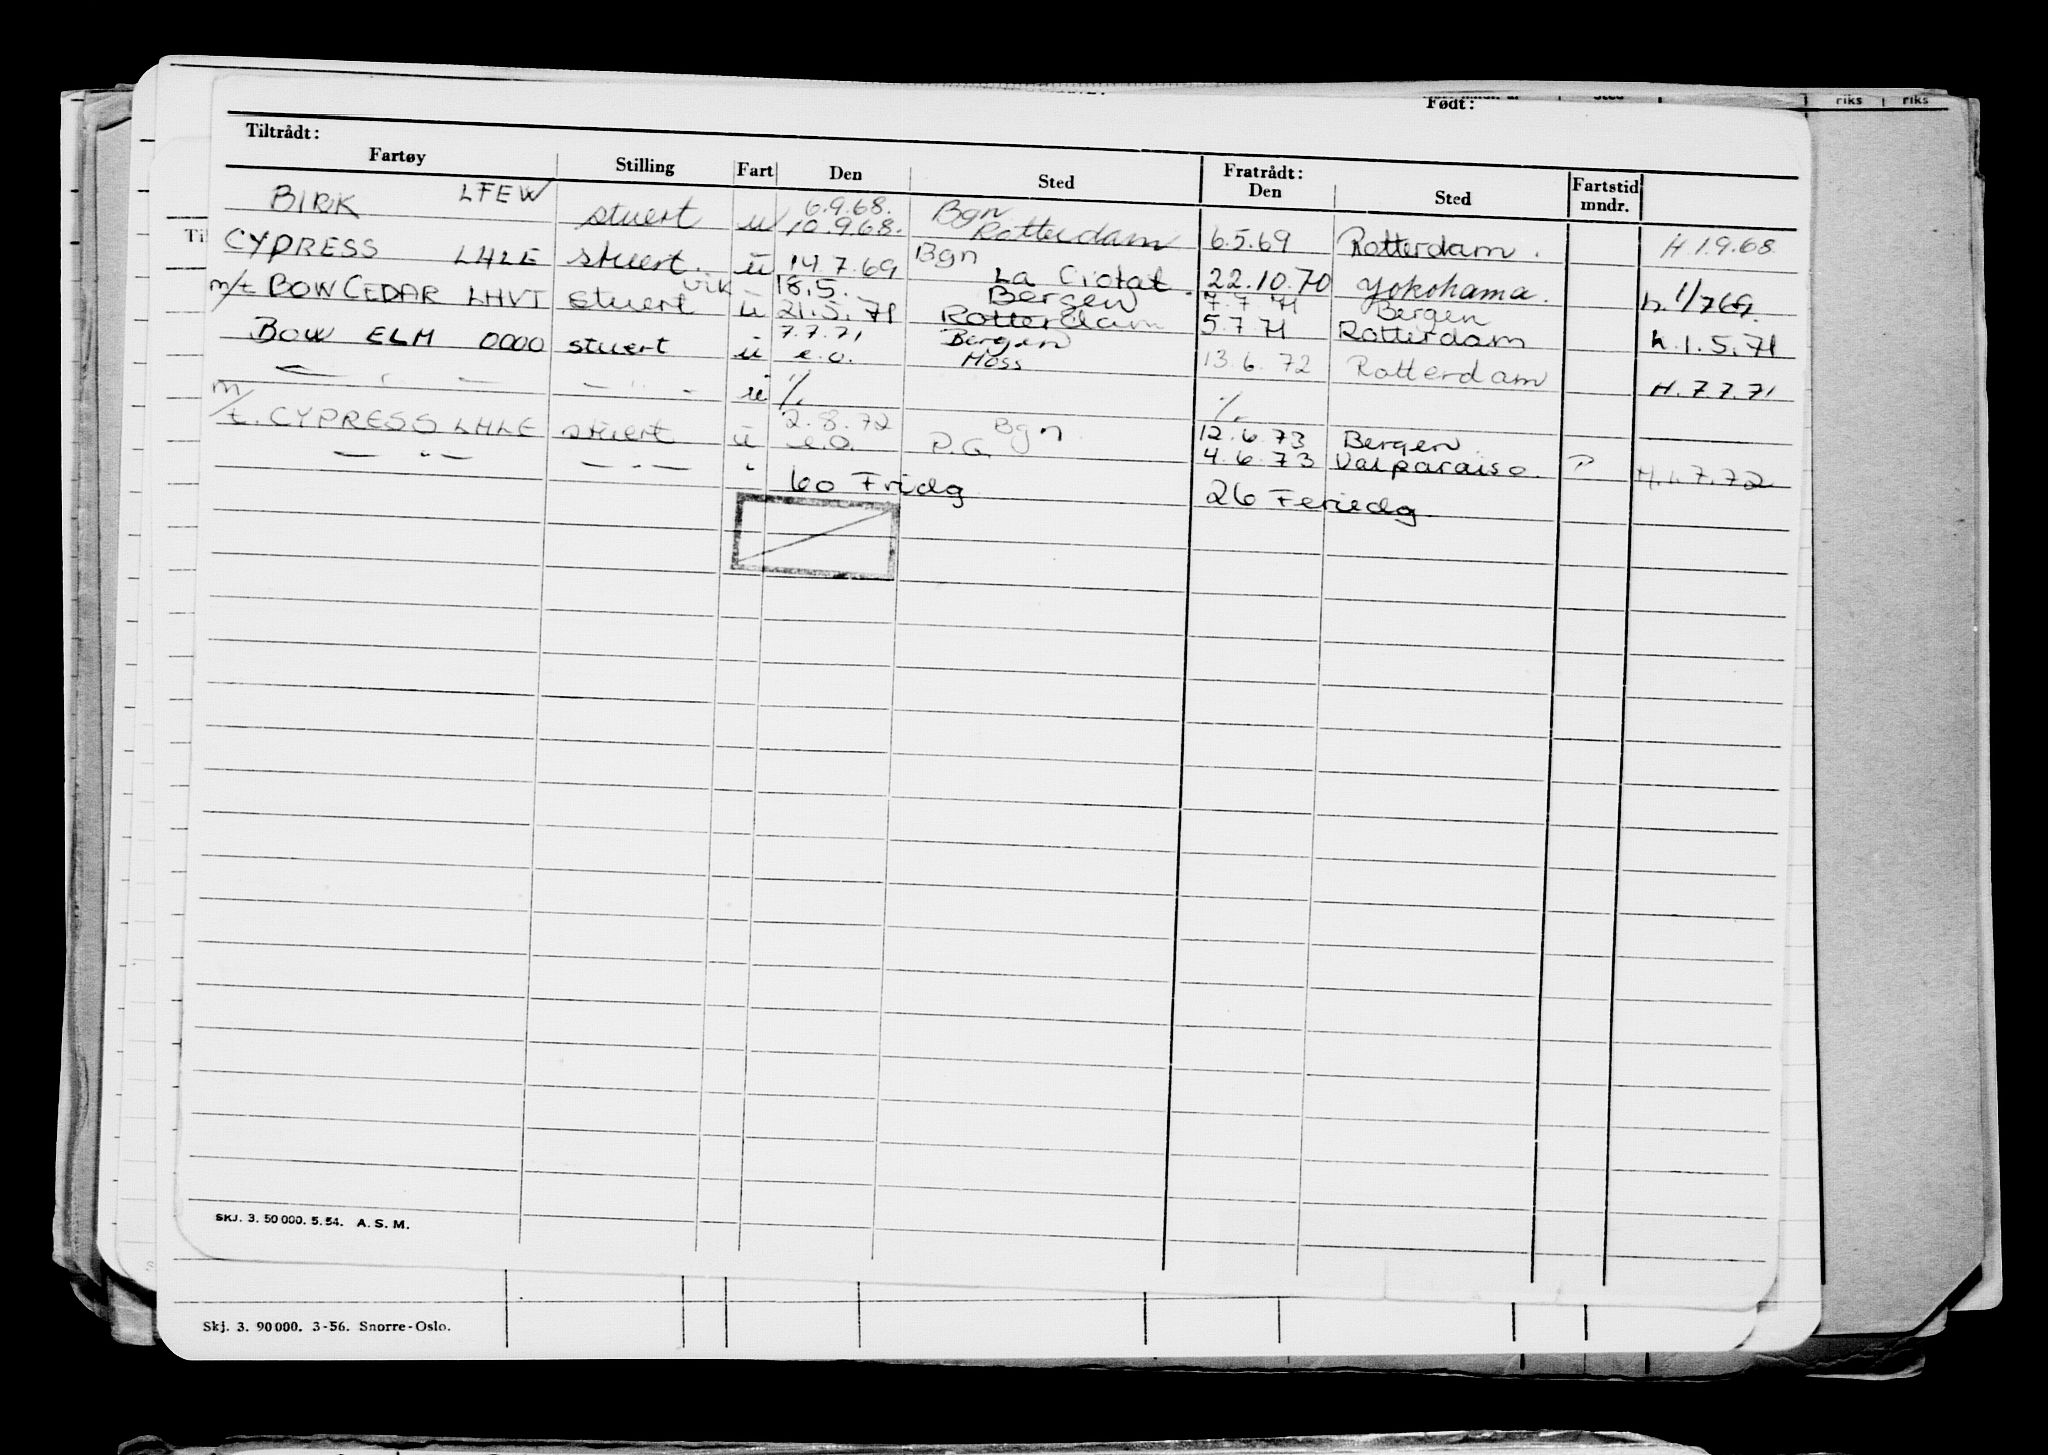 Født:
Sted
riks riks
Tiltrådt:
Fartøy Stilling Fart Den Sted Fratrådt: Den Sted Fartstid mndr.
BIRK LFEW stuert u 6.9.68. Bgn
10.9.68. Rotterdam 6.5.69 Rotterdam. H 1.9.68
CYPRESS LHLE stuert. u 14.7.69 Bgn La Ciotat 22.10.70 Yokohama. h. 1/7 69.
vik 18.5. Bergen 7.7.71 Bergen
m/t BOW CEDAR LHVT stuert u 21.5.71 Rotterdam 5.7.71 Rotterdam h. 1.5.71
7.7.71 Bergen
BOW ELM 0000 stuert u e.o. Moss 13.6.72 Rotterdam H. 7.7.71
— " — — " — u %. %.
2.8.72 Bgn 12.6.73 Bergen
m/t. CYPRESS LHLE stuert u e.o. P.G. 4.6.73 Valparaiso. P H. 1.7.72
— " — — " — "
60 Fridg 26 Feriedg
SKJ. 3. 50 000. 5. 54. A. S. M.
Skj. 3. 90 000. 3-56. Snorre-Oslo.